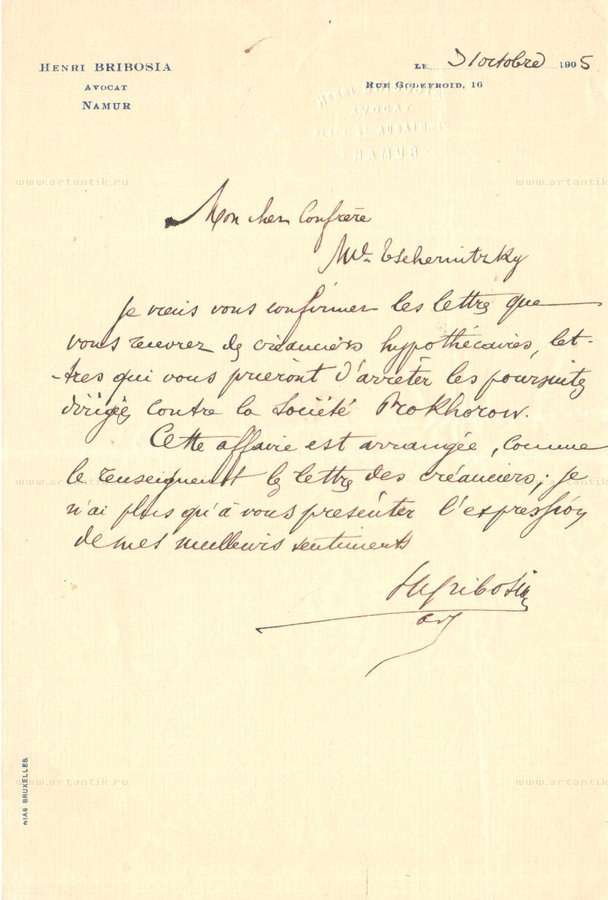 HENRI BRIBOSIA
AVOCAT
NAMUR
LE 31 octobre 1905
RUE GODEFROID, 16
AVOCAT
NAMUR
www.artantik.ru www.artantik.ru
Mon cher Confrère
Mtre Tschernitzky
Je viens vous confirmer les lettres que
vous recevrez des créanciers hypothécaires, let-
-tres qui vous prieront d'arrêter les poursuites
dirigées contre la Société Prokhorow.
Cette affaire est arrangée, comme
le renseignent les lettres des créanciers; je
www.artantik.ru www.artantik.ru
n'ai plus qu'à vous présenter l'expression
de mes meilleurs sentiments
HBribosia
av
www.artantik.ru www.artantik.ru
BRUXELLES